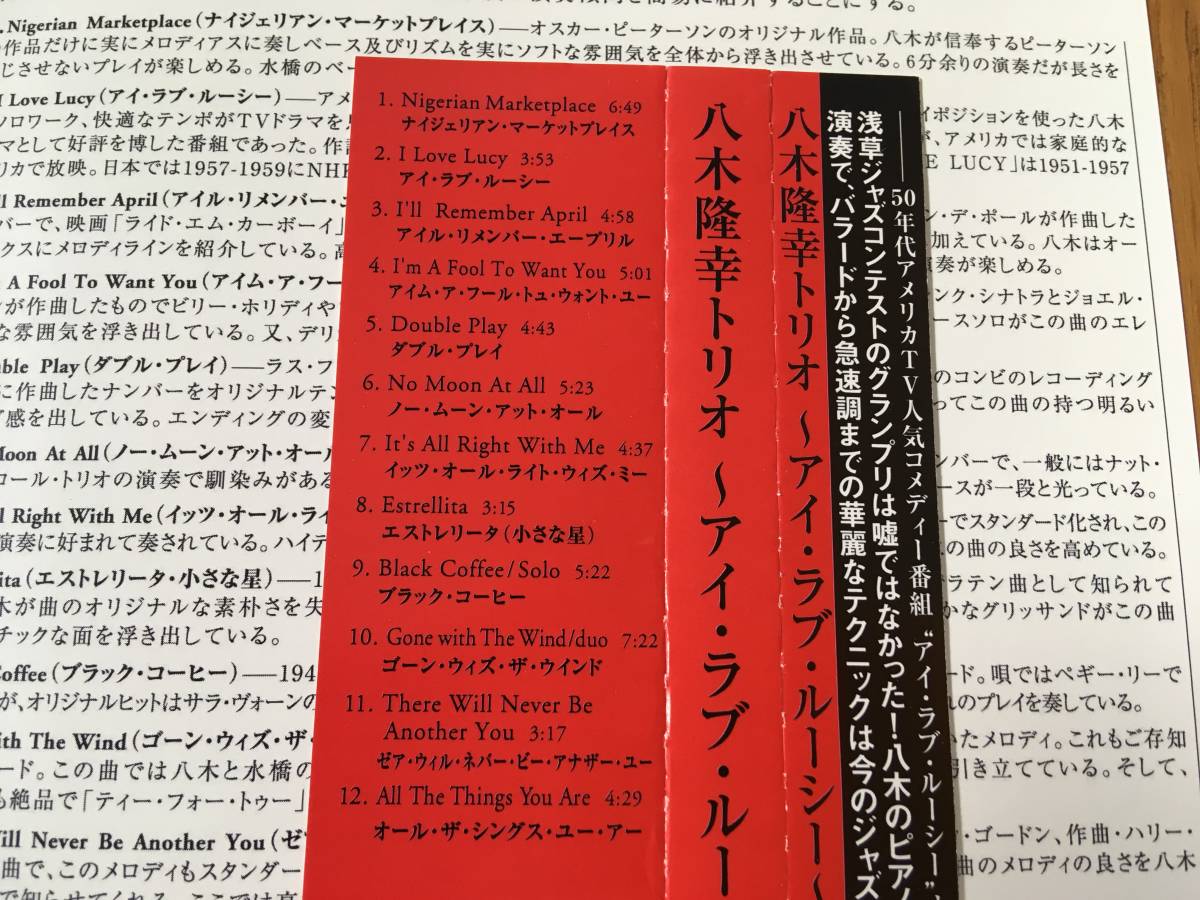 . Nigerian Marketplace(ナイジェリアン・マーケットプレイス)――オスカー・ピーターソンのオリジナル作品。八木が信奉するピーターソン
作品だけに実にメロディアスに奏しベース及びリズムを実にソフトな雰囲気を全体から浮き出させている。6分余りの演奏だが長さを
じさせないプレイが楽しめる。水橋のベー
I Love Lucy(アイ・ラブ・ルーシー)――アメ
ソロワーク、快適なテンポがTVドラマを
マとして好評を博した番組であった。作
リカで放映。日本では1957-1959にNH
ll Remember April(アイル・リメンバー・
バーで、映画「ライド・エム・カーボーイ」
クスにメロディラインを紹介している。
A Fool To Want You(アイム・ア・フー
が作曲したものでビリー・ホリディや
な雰囲気を浮き出している。又、デリ
ble Play(ダブル・プレイ)――ラス・フ
に作曲したナンバーをオリジナルテン
感を出している。エンディングの変
Moon At All(ノー・ムーン・アット・オール
コール・トリオの演奏で馴染みがある
l Right With Me(イッツ・オール・ライ
演奏に好まれて奏されている。ハイテ
ita(エストレリータ・小さな星)――1
木が曲のオリジナルな素朴さを失
チックな面を浮き出している。
Coffee(ブラック・コーヒー)――194
が、オリジナルヒットはサラ・ヴォーンの
ith The Wind(ゴーン・ウィズ・ザ・
ード。この曲では八木と水橋の
も絶品で「ティー・フォー・トゥー」
Will Never Be Another You(ゼ
曲で、このメロディもスタンダー
1. Nigerian Marketplace 6:49
ナイジェリアン・マーケットプレイス
2. I Love Lucy 3:53
アイ・ラブ・ルーシー
3. I'll Remember April 4:58
アイル・リメンバー・エーブリル
4. I'm A Fool To Want You 5:01
アイム・ア・フール・トュ・ウォント・ユー
5. Double Play 4:43
ダブル・プレイ
6. No Moon At All 5:23
ノー・ムーン・アット・オール
7. It's All Right With Me 4:37
イッツ・オール・ライト・ウィズ・ミー
8. Estrellita 3:15
エストレリータ(小さな星)
9. Black Coffee/Solo 5:22
ブラック・コーヒー
10. Gone with The Wind/duo 7:22
ゴーン・ウィズ・ザ・ウインド
11. There Will Never Be
Another You 3:17
ゼア・ウィル・ネバー・ビー・アナザー・ユー
12. All The Things You Are 4:29
オール・ザ・シングス・ユー・アー
八木隆幸トリオ～アイ・ラブ・ルー
八木隆幸トリオ～アイ・ラブ・ルーシー～
――50年代アメリカTV人気コメディー番組 “アイ・ラブ・ルーシー”
浅草ジャズコンテストのグランプリは嘘ではなかった！八木のピアノ
演奏で、バラードから急速調までの華麗なテクニックは今のジャズ
イポジションを使った八木
が、アメリカでは家庭的な
E LUCY」は1951-1957
ン・デ・ポールが作曲した
加えている。八木はオー
演奏が楽しめる。
ンク・シナトラとジョエル・
ースソロがこの曲のエレ
のコンビのレコーディング
ってこの曲の持つ明るい
ンバーで、一般にはナット・
ースが一段と光っている。
ーでスタンダード化され、この
の曲の良さを高めている。
ラテン曲として知られて
かなグリッサンドがこの曲
ード。唄ではペギー・リーで
れのプレイを奏している。
いたメロディ。これもご存知
引き立てている。そして、
・ゴードン、作曲・ハリー・
曲のメロディの良さを八木